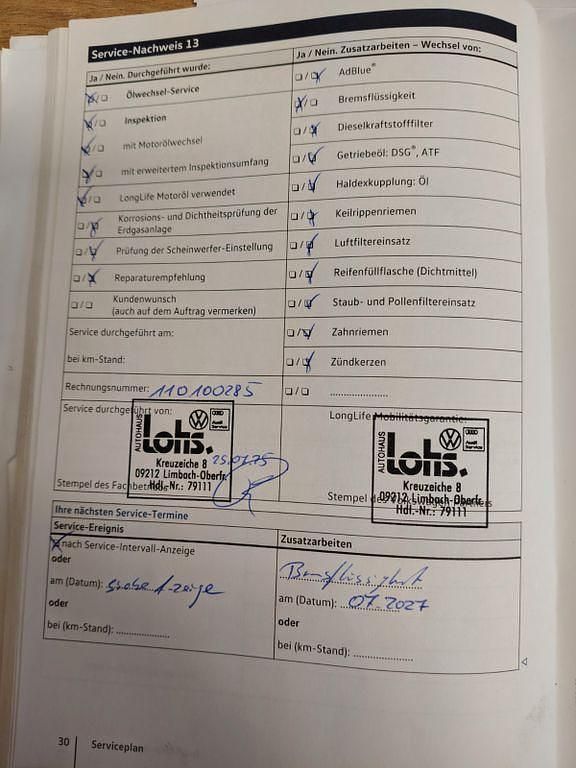 Service-Nachweis 13
Ja / Nein. Durchgeführt wurde:
Ölwechsel-Service
Inspektion
mit Motorölwechsel
mit erweitertem Inspektionsumfang
LongLife Motoröl verwendet
Korrosions- und Dichtheitsprüfung der
Erdgasanlage
Prüfung der Scheinwerfer-Einstellung
Reparaturempfehlung
Kundenwunsch
(auch auf dem Auftrag vermerken)
Service durchgeführt am:
bei km-Stand:
Rechnungsnummer: 110100285
Service durchgeführt von:
AUTOHAUS
Lohs.
Audi
Service
Kreuzeiche 8
09212 Limbach-Oberfr.
Hdl.-Nr.: 79111
Stempel des Fachbetriebs
Ja / Nein. Zusatzarbeiten – Wechsel von:
AdBlue®
Bremsflüssigkeit
Dieselkraftstofffilter
Getriebeöl: DSG®, ATF
Haldexkupplung: Öl
Keilrippenriemen
Luftfiltereinsatz
Reifenfüllflasche (Dichtmittel)
Staub- und Pollenfiltereinsatz
Zahnriemen
Zündkerzen
LongLife Mobilitätsgarantie:
AUTOHAUS
Lohs.
Audi
Service
Kreuzeiche 8
09212 Limbach-Oberfr.
Hdl.-Nr.: 79111
Stempel des Volkswagen Partners
Ihre nächsten Service-Termine
Service-Ereignis
nach Service-Intervall-Anzeige
oder
am (Datum): siehe Anzeige
oder
bei (km-Stand):
Zusatzarbeiten
Bremsflüssigkeit
am (Datum): 07.2027
oder
bei (km-Stand):
30 Serviceplan